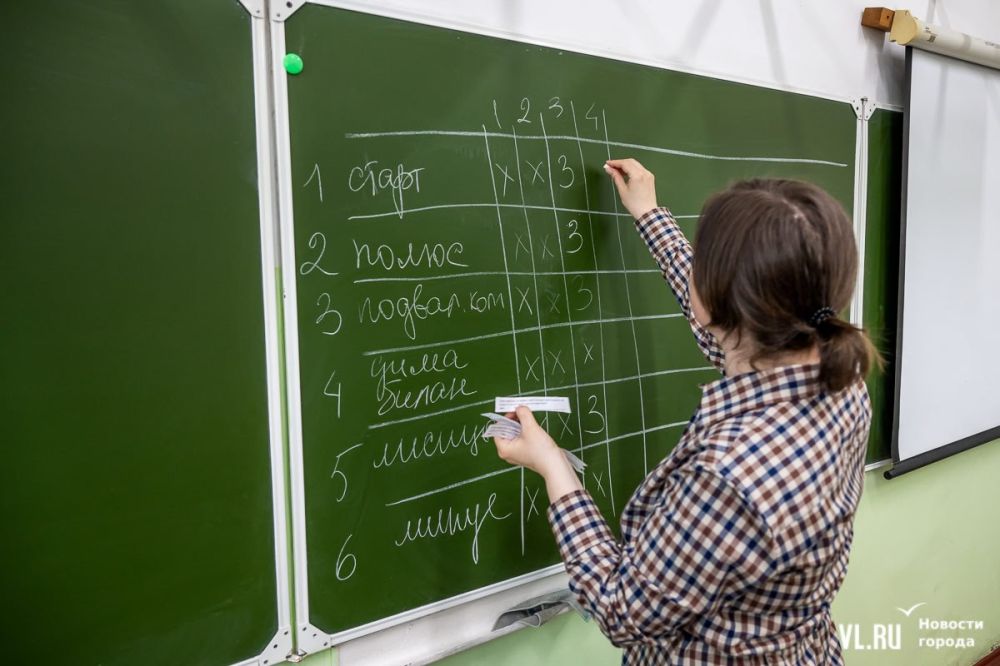 1 2 3 4
1 старт х х 3
2 полюс х х 3
3 подвал.ком х х 3
4 дима билан х х х
5 х 3
6 минус х х
VL.RU Новости города